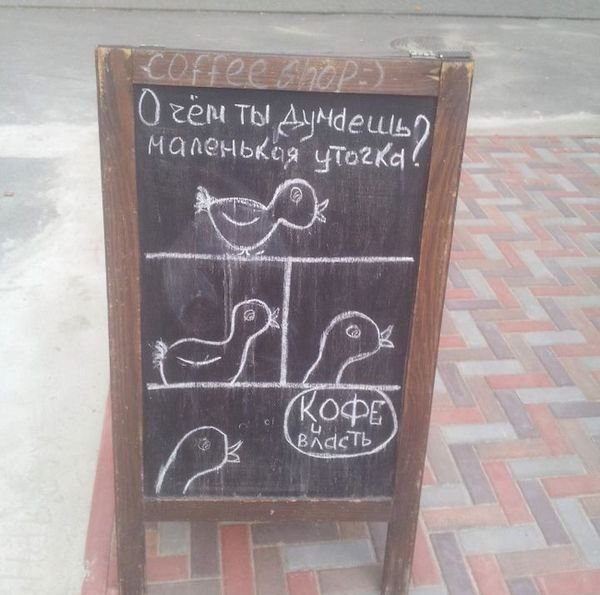 coffee shop=)
О чём ты думаешь
маленькая уточка?
КОФЕ
и
власть